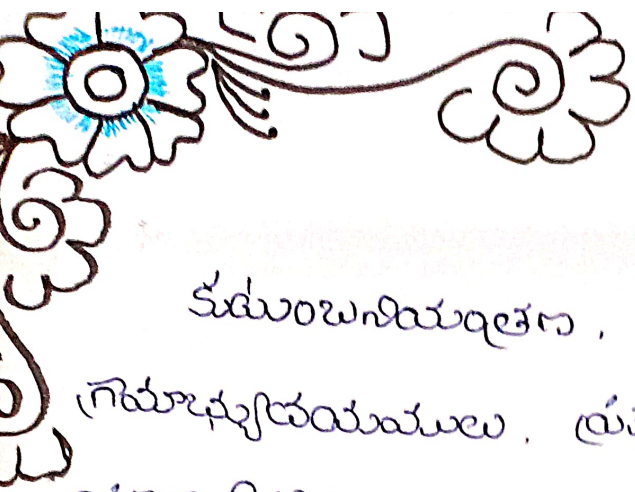 కుటుంబనియంత్రణ,
గ్రామాభ్యుదయములు,